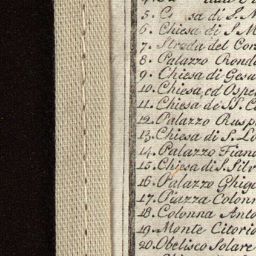 5. Chiesa di S. M
6. Chiesa di S. M
7. Strada del Cor
8. Palazzo Ronda
9. Chiesa di Gesu
10. Chiesa, ed Ospe
11. Chiesa de SS. C
12. Palazzo Rusp
13. Chiesa di S. Lo
14. Palazzo Fian
15. Chiesa di S. Silv
16. Palazzo Ghigi
17. Piazza Colonn
18. Colonna Anto
19. Monte Citorio
20. Obelisco Solare